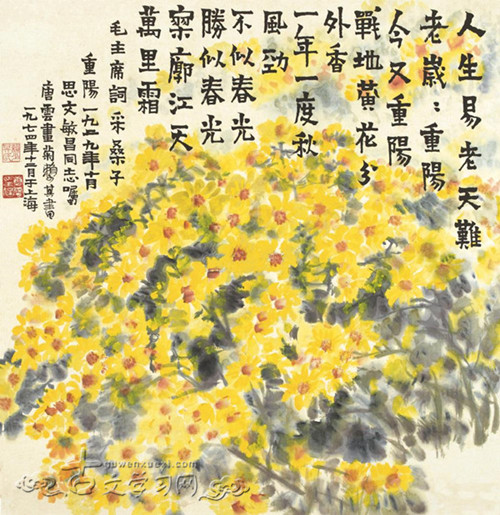 人生易老天難
老歲〻重陽
今又重陽
戰地黃花分
外香
一年一度秋
風勁
不似春光
勝似春光
寥廓江天
萬里霜
毛主席詞 采桑子
重陽 一九二九年十月
思文敏昌同志囑
唐雲畫菊 其書
一九七四年十一月于上海
古文学习网
guwenxuexi.com